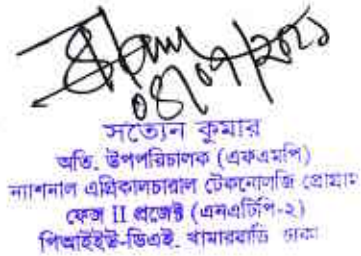 ০৪/০৭/২০২১
সত্যেন কুমার
অতি. উপপরিচালক (এফএমপি)
ন্যাশনাল এগ্রিকালচারাল টেকনোলজি প্রোগ্রাম
ফেজ II প্রজেক্ট (এনএটিপি-২)
পিআইইউ-ডিএই. খামারবাড়ি ঢাকা